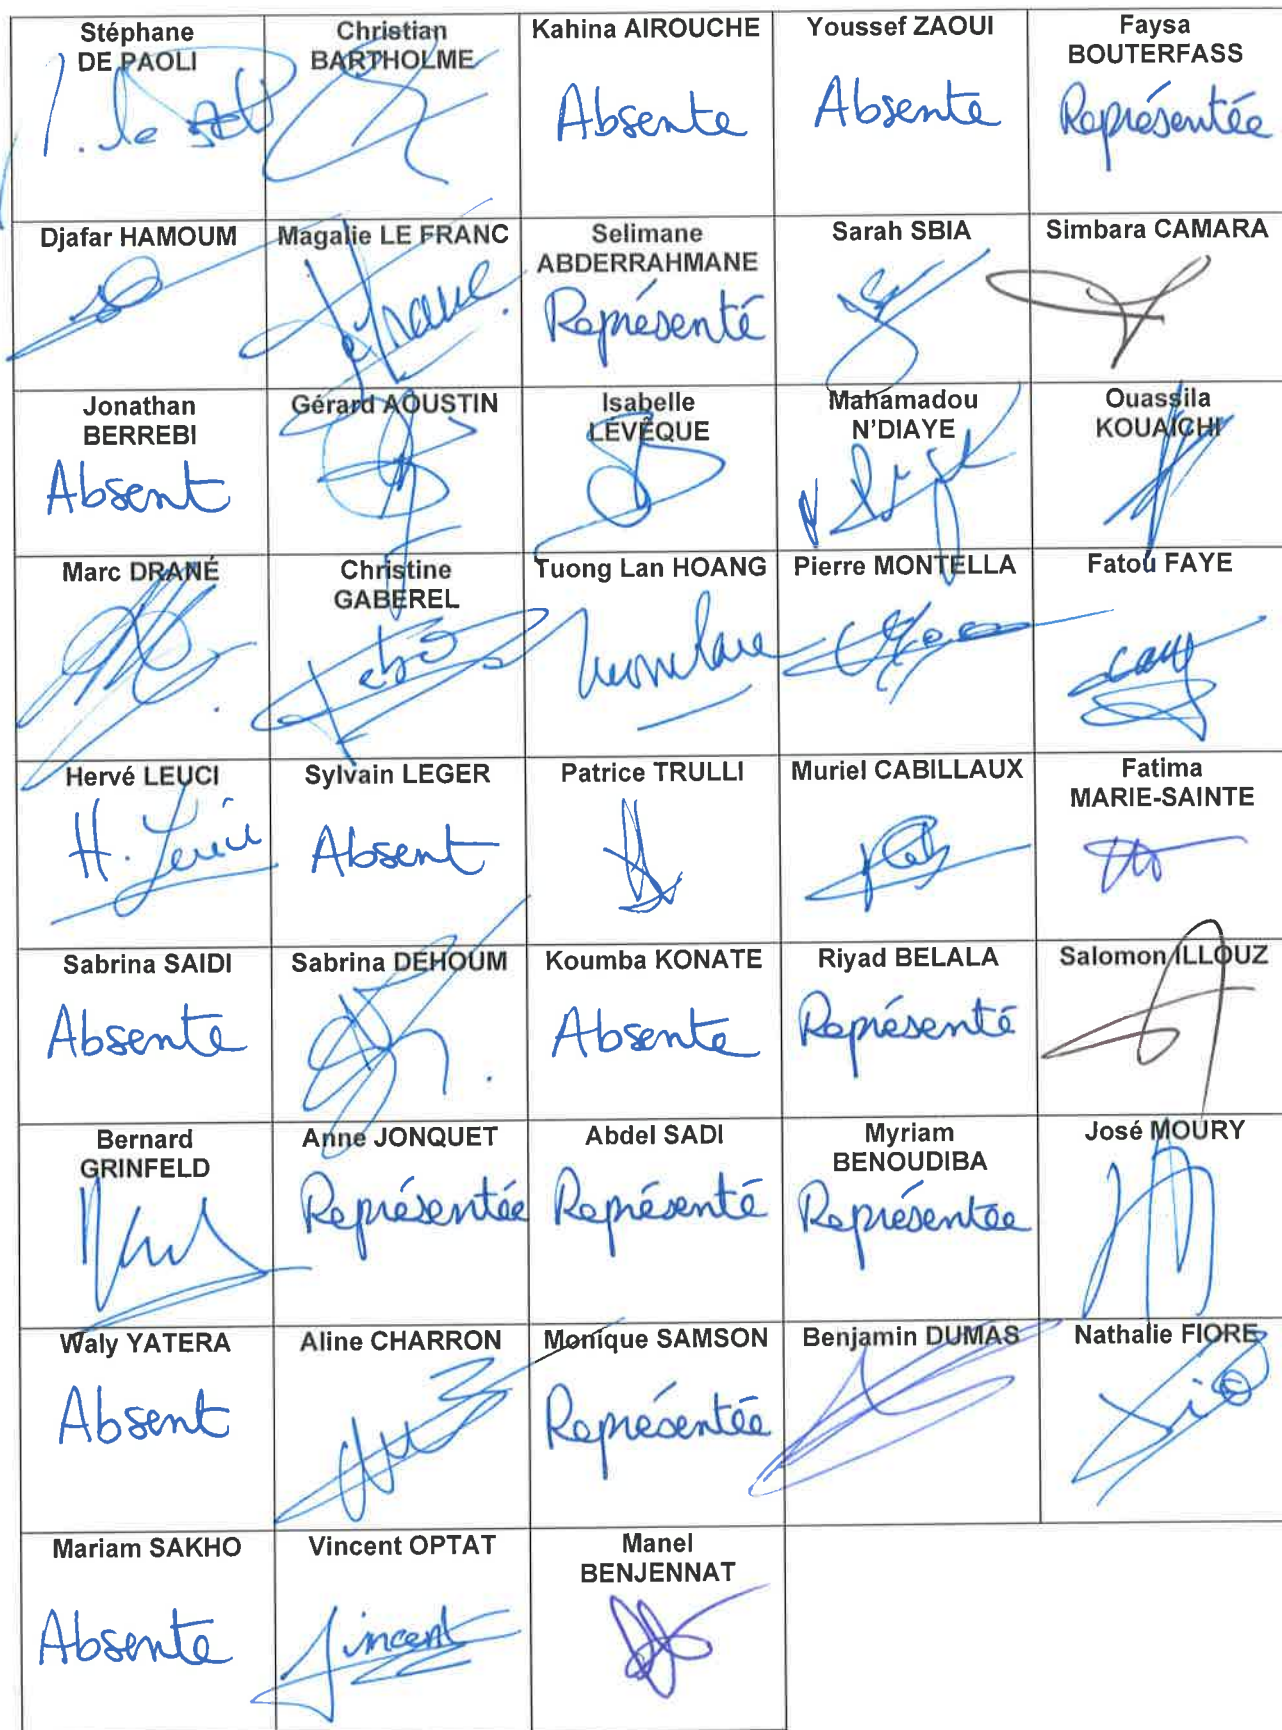 Stéphane
DE PAOLI
Christian
BARTHOLME
Kahina AIROUCHE
Absente
Youssef ZAOUI
Absente
Faysa
BOUTERFASS
Représentée
Djafar HAMOUM
Magalie LE FRANC
Selimane
ABDERRAHMANE
Représenté
Sarah SBIA
Simbara CAMARA
Jonathan
BERREBI
Absent
Gérard AOUSTIN
Isabelle
LÉVÊQUE
Mahamadou
N'DIAYE
Ouassila
KOUAICHI
Marc DRANÉ
Christine
GABEREL
Tuong Lan HOANG
Pierre MONTELLA
Fatou FAYE
Hervé LEUCI
H. Leuci
Sylvain LEGER
Absent
Patrice TRULLI
Muriel CABILLAUX
Fatima
MARIE-SAINTE
Sabrina SAIDI
Absente
Sabrina DEHOUM
Koumba KONATE
Absente
Riyad BELALA
Représenté
Salomon ILLOUZ
Bernard
GRINFELD
Anne JONQUET
Représentée
Abdel SADI
Représenté
Myriam
BENOUDIBA
Représentée
José MOURY
Waly YATERA
Absent
Aline CHARRON
Monique SAMSON
Représentée
Benjamin DUMAS
Nathalie FIORE
Mariam SAKHO
Absente
Vincent OPTAT
Vincent
Manel
BENJENNAT